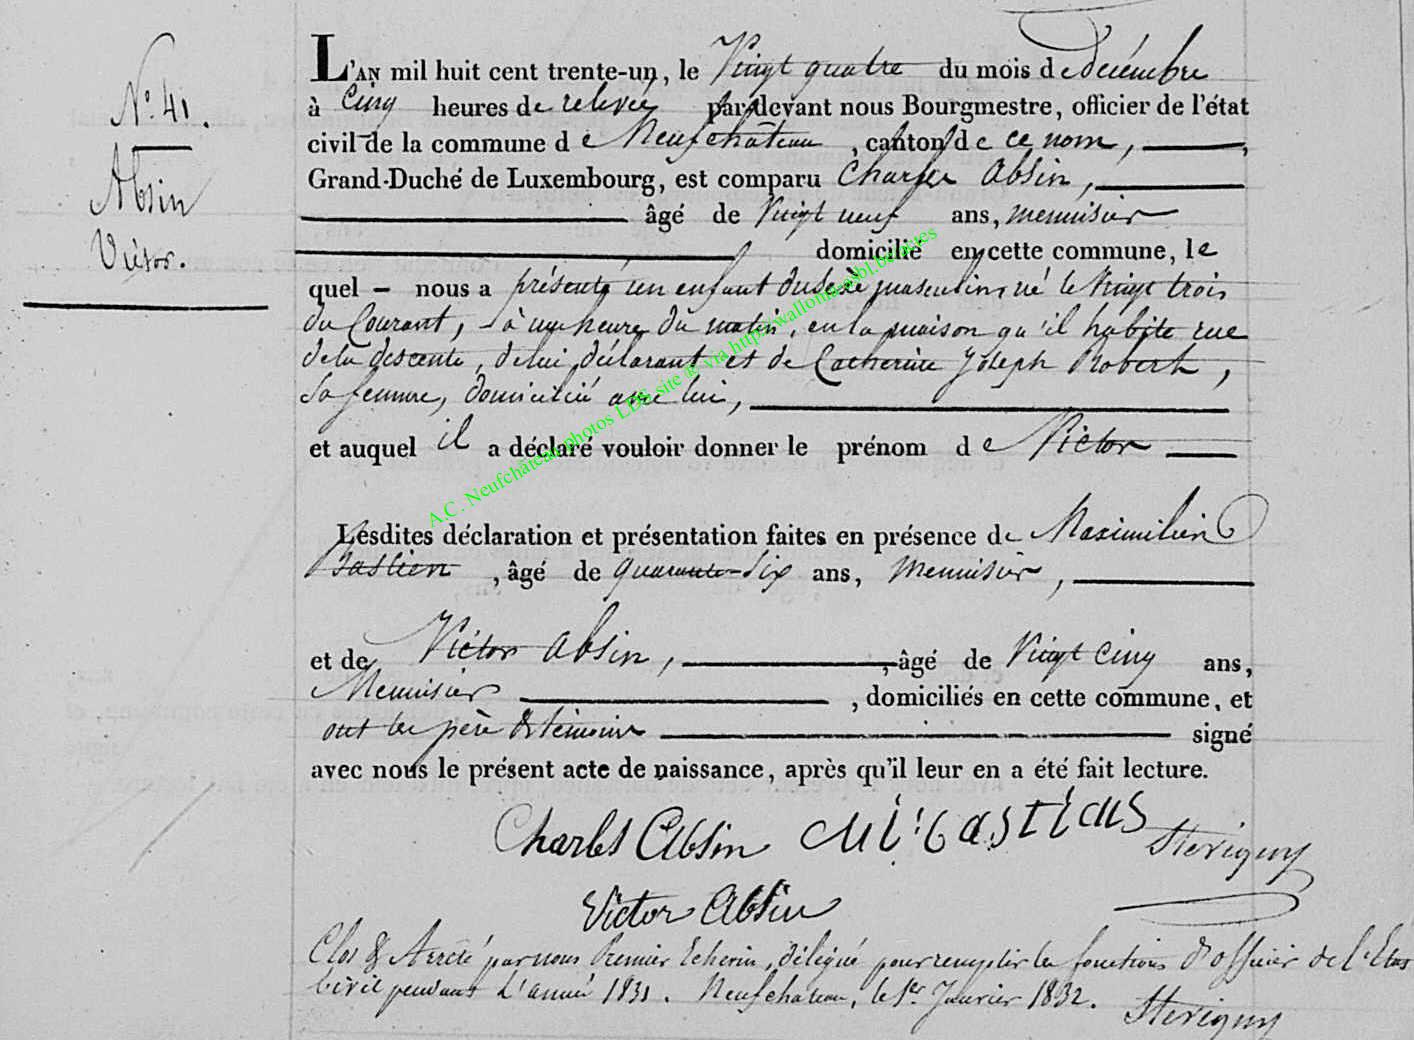 N.° 41.
Absin
Victor.
L'AN mil huit cent trente-un, le Vingt quatre du mois de décembre
à Cinq heures de relevée par-devant nous Bourgmestre, officier de l'état
civil de la commune de Neufchâteau, canton de ce nom,
Grand-Duché de Luxembourg, est comparu Charles Absin,
âgé de Vingt neuf ans, menuisier
domicilié en cette commune, le
quel - nous a présenté un enfant du sexe masculin, né le Vingt trois
du Courant, à une heure du matin, en la maison qu'il habite rue
de la descente, de lui déclarant et de Catherine Joseph Robert,
Sa femme, domiciliée avec lui,
et auquel il a déclaré vouloir donner le prénom de Victor
Lesdites déclaration et présentation faites en présence de Maximilien
Bastien, âgé de quarante-six ans, Menuisier,
et de Victor Absin, âgé de Vingt cinq ans,
Menuisier, domiciliés en cette commune, et
ont les père & témoins signé
avec nous le présent acte de naissance, après qu'il leur en a été fait lecture.
Charles Absin Mi: bastiens
Victor Absin
Clos & Arrêté par nous Premier Echevin, délégué pour remplir les fonctions d'officier de l'Etat
Civil pendant l'année 1831. Neufchateau, le 1er Janvier 1832.
A.C. Neufchâteau photos LDS site & via http://wallonica